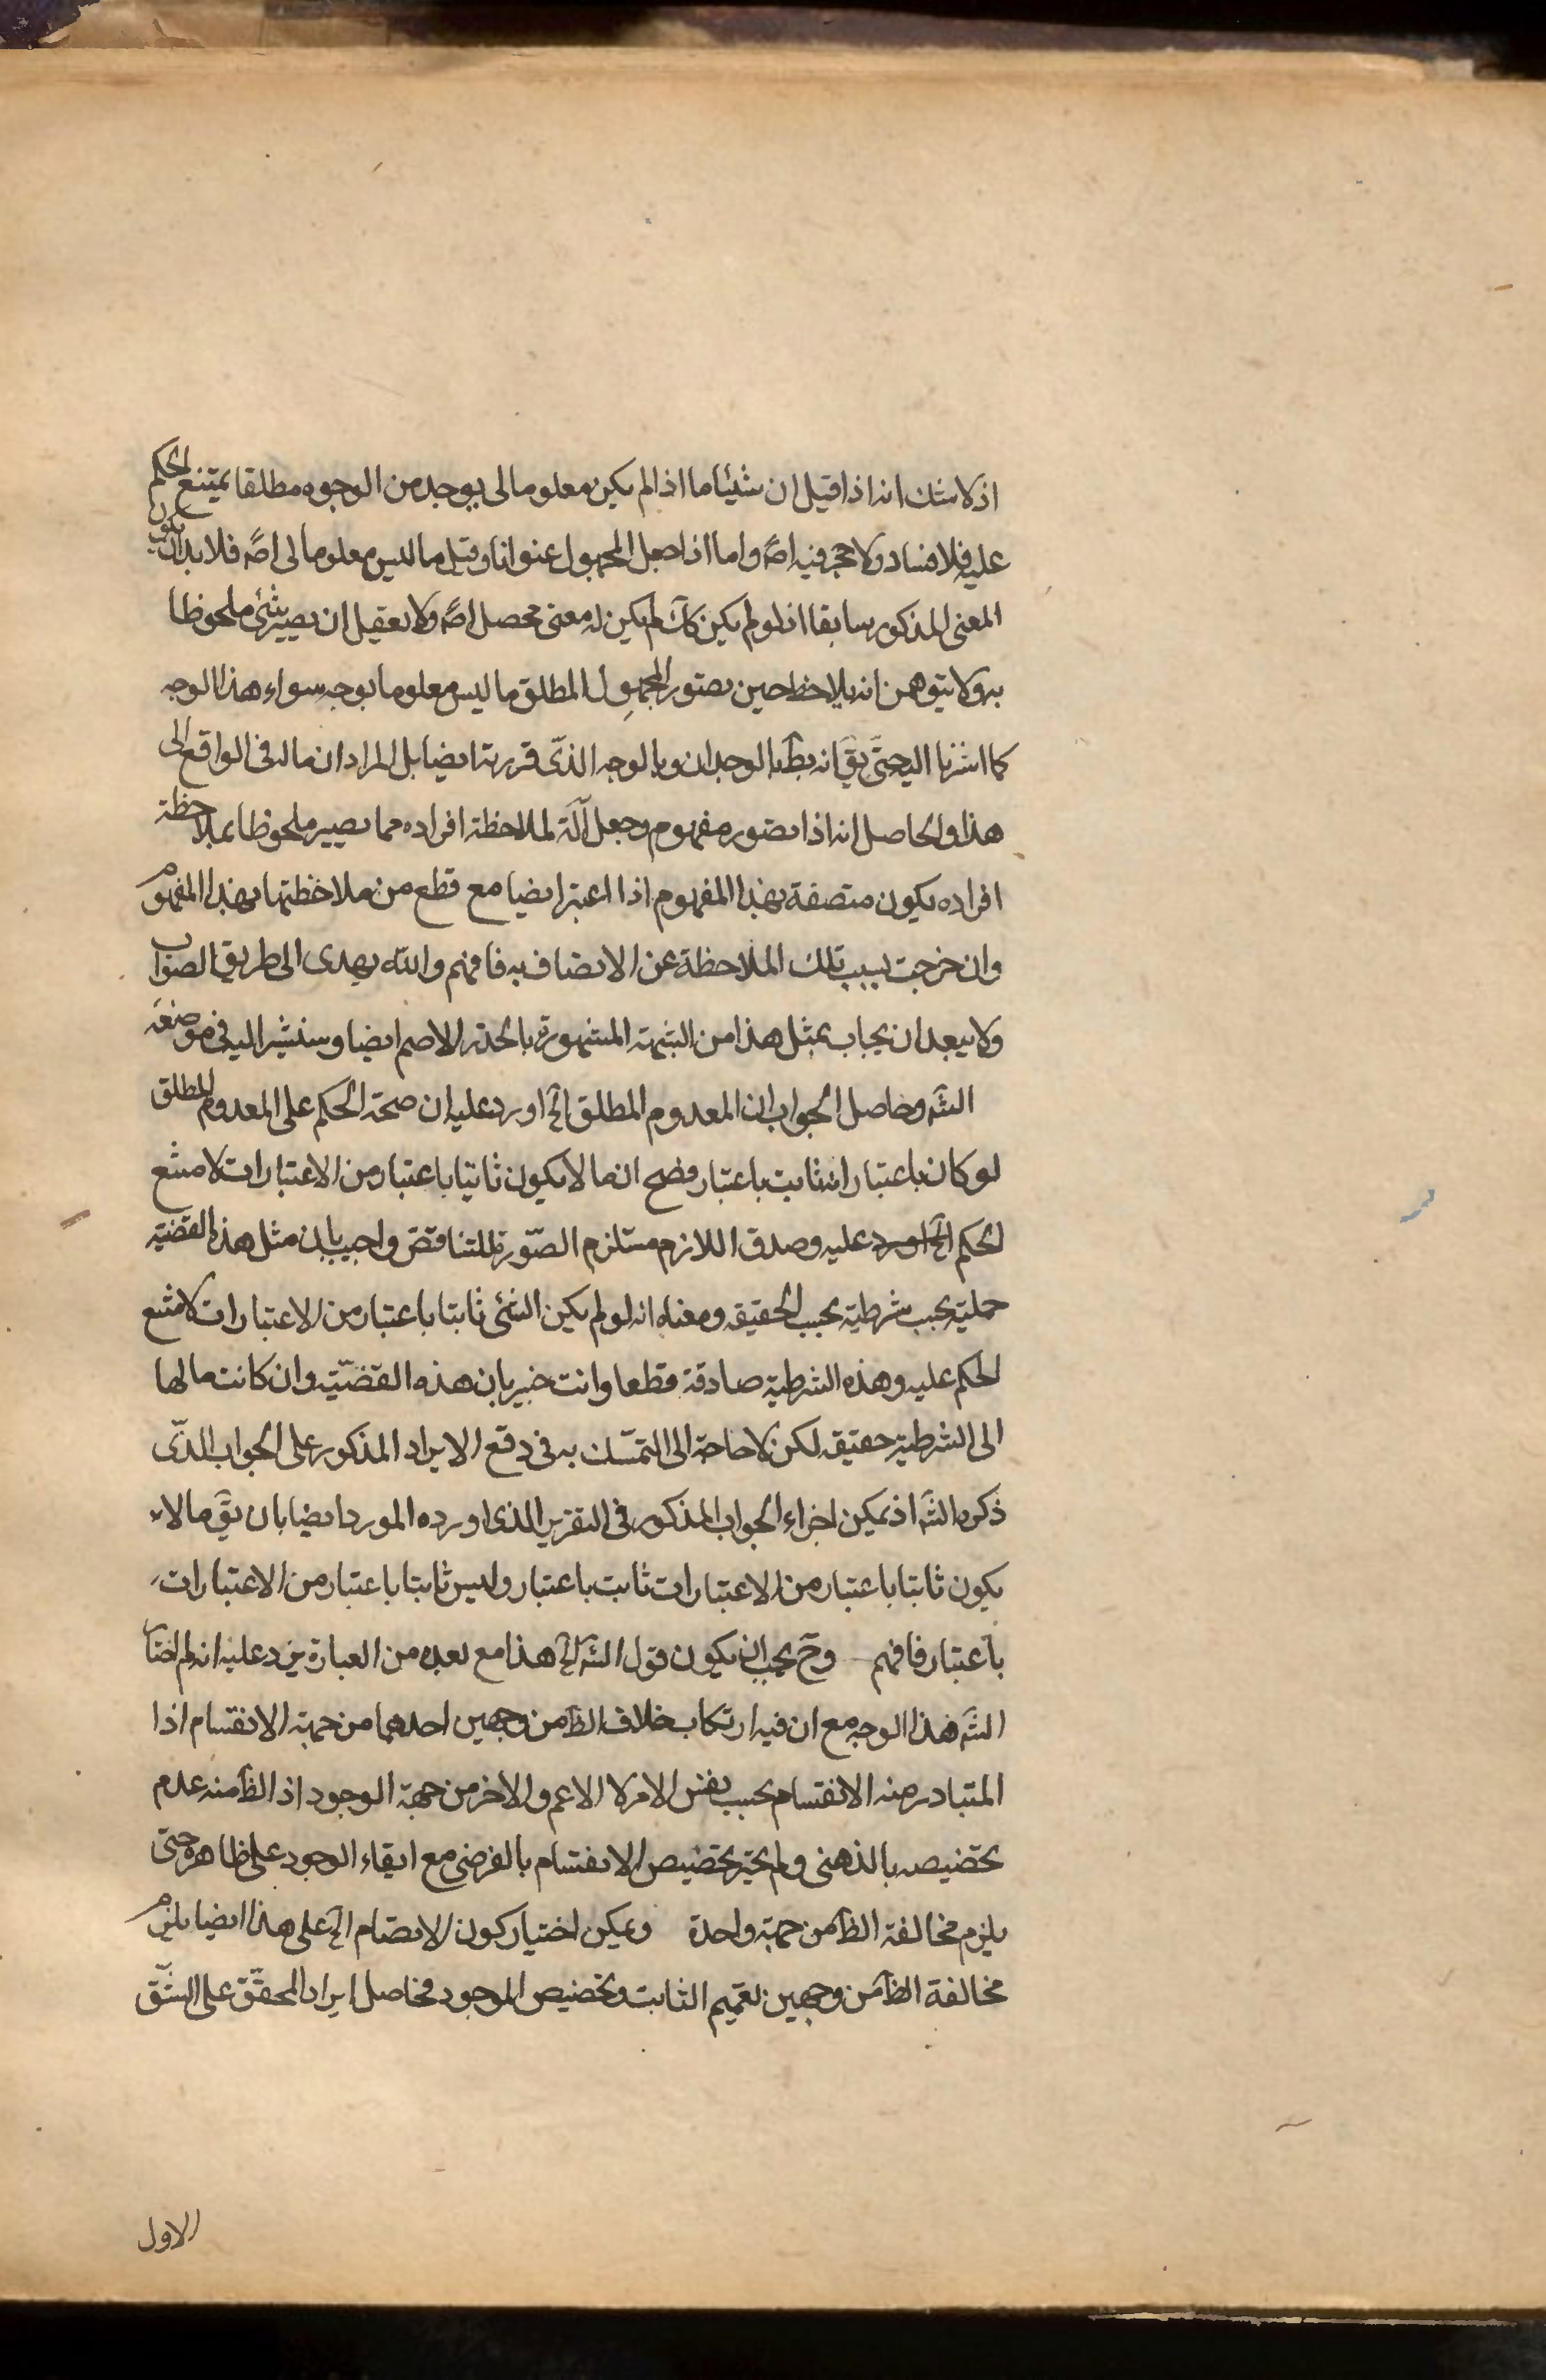 اذ لا شك انه اذا قيل ان شيئا ما اذا لم يكن معلوما لى بوجه من الوجوه مطلقا يمتنع الحكم
عليه فلا فساد ولا حجر فيه اصً واما اذا جعل المجهول عنوانا وقيل ما ليس معلوما لى اصً فلا بد ان يكون
المعنى المذكور سابقا اذ لو لم يكن كك لم يكن له معنى محصل اصً ولا يعقل ان يصير شئ ملحوظا
به ولا يتوهمن انه يلاحظ حين يصتور المجهول المطلق ما ليس معلوما بوجه سواء هذا الوجه
كما اشرنا اليه حتى يق انه بط بالوجدان وبالوجه الذى قررته ايضا بل المراد ان ماله فى الواقع الى
هذا والحاصل انه اذا يصور مفهوم وجعل آلة لملاحظة افراده مما يصير ملحوظا بملاحظة
افراده يكون متصفة بهذا المفهوم اذا اعتبر ايضا مع قطع من ملاحظتها بهذا المفهوم
وان خرجت بسبب تلك الملاحظة عن الاتصاف به فافهم والله يهدى الى طريق الصواب
ولا يبعد ان يجاب بمثل هذا من الشبهة المشهورة بالجذر الاصم ايضا وسنشير اليه فى موضعه
الشه وحاصل الجواب ان المعدوم المطلق الخ اورد عليه ان صحة الحكم على المعدوم المطلق
لو كان باعتبار انه ثابت باعتبار فصح ان ما لا يكون ثابتا باعتبار من الاعتبارات لا متنع
الحكم الخ اورد عليه وصدق اللازم مستلزم الصورة للتناقض واجيب بان مثل هذه القضية
حملية بحسب شرطية بحسب الحقيقه ومعناه انه لو لم يكن الشئ ثابتا باعتبار من الاعتبارات لا متنع
الحكم عليه وهذه الشرطية صادقة قطعا وانت خبير بان هذه القضيّة وان كانت مالها
الى الشرطية حقيقه لكن لا حاجة الى التمسّك به فى دفع الايراد المذكور على الجواب الذّى
ذكره الشه اذ يمكن اجراء الجواب المذكور فى التقرير الذى اورده المورد ايضا بان يق ما لا
يكون ثابتا باعتبار من الاعتبارات ثابت باعتبار وليس ثابتا باعتبار من الاعتبارات
باعتبار فافهم وح يجب ان يكون قول الشه الخ هذا مع بعده من العبارة يرد عليه انه لم اختار
الشه هذا الوجه مع ان فيه ارتكاب خلاف الظ من وجهين احدهما من جهة الانقسام اذا
المتبادر منه الانقسام بحسب نفس الامر لا الاعم والاخر من جهة الوجود اذ الظ منه عدم
تخصيصه بالذهنى ولم يختر تخصيص الانقسام بالفرضى مع ابقاء الوجود على ظاهره حتى
يلزم مخالفة الظ من جهة واحدة ويمكن اختيار كون الانقسام الخ على هذا ايضا يلزم
مخالفة الظ من وجهين تعميم الثابت وتخصيص الموجود فحاصل ايراد المحقق على الشق
الاول